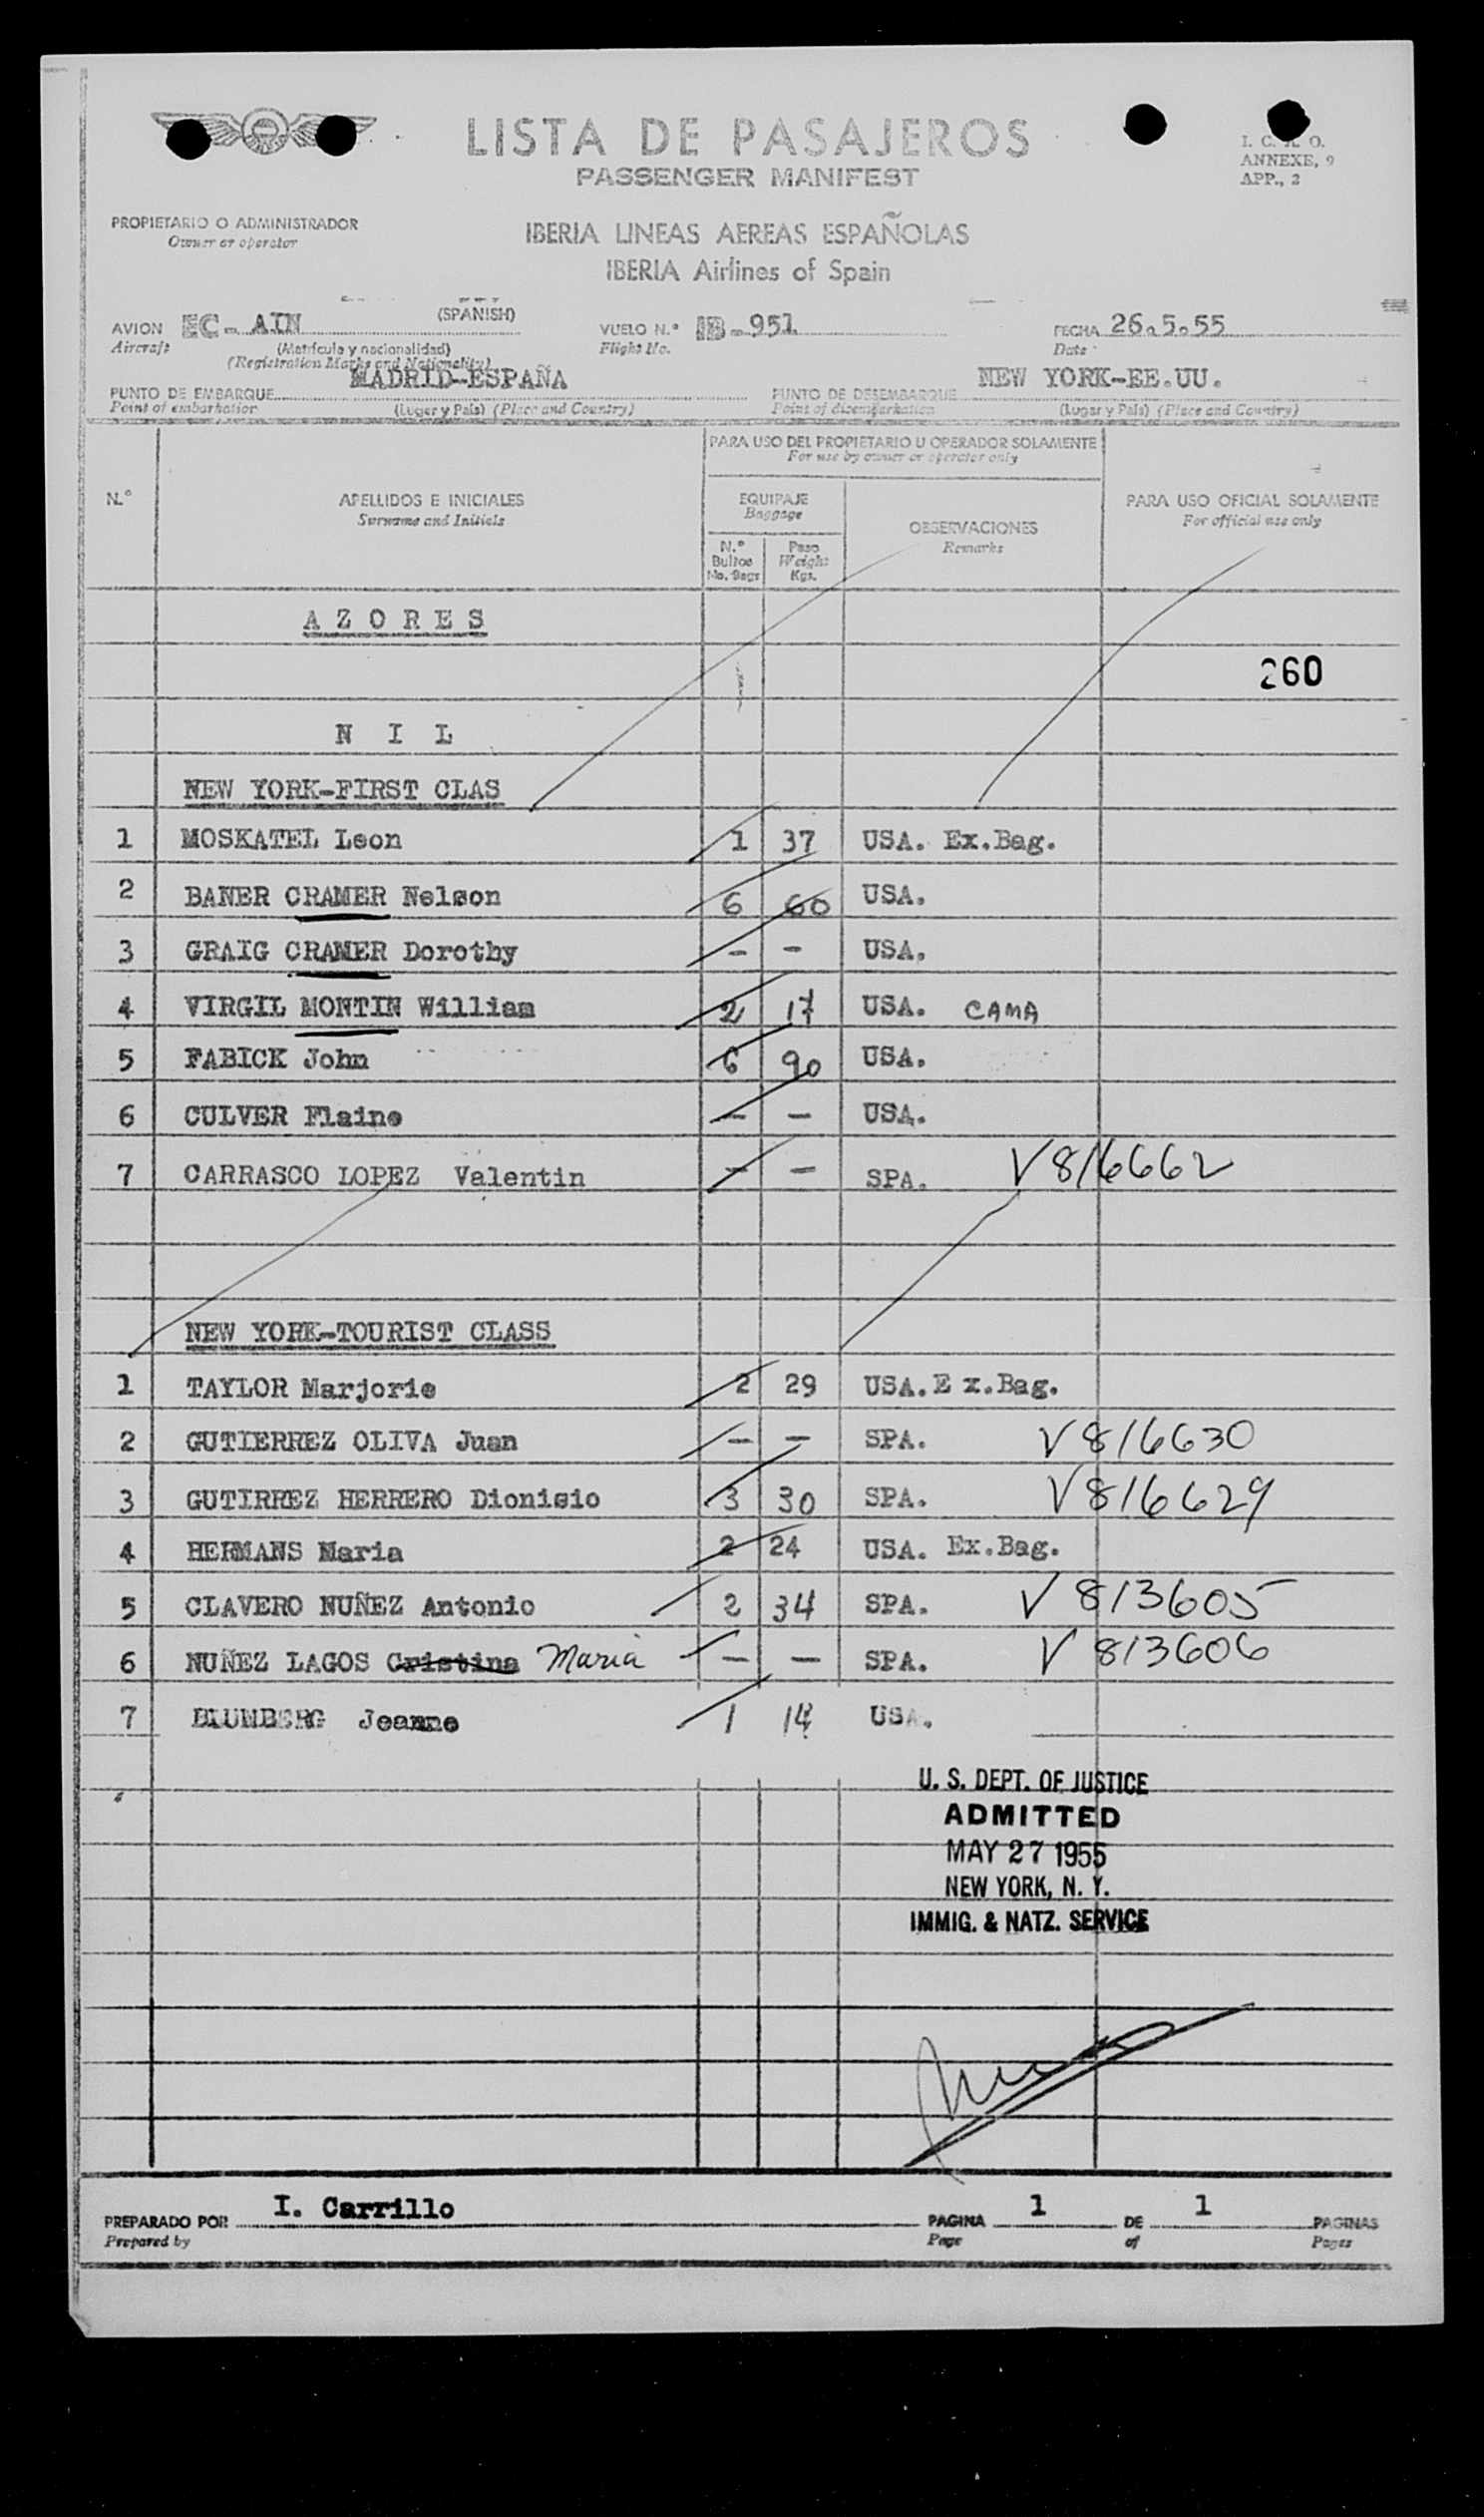 LISTA DE PASAJEROS
PASSENGER MANIFEST
I. C. A. O.
ANNEXE, 9
APP., 2
PROPIETARIO O ADMINISTRADOR
Owner or operator
IBERIA LINEAS AEREAS ESPAÑOLAS
IBERIA Airlines of Spain
AVION EC- AIN (SPANISH) VUELO N.º IB-951 FECHA 26.5.55
Aircraft (Matrícula y nacionalidad) Flight No. Date
(Registration Marks and Nationality)
PUNTO DE EMBARQUE MADRID-ESPAÑA PUNTO DE DESEMBARQUE NEW YORK-EE.UU.
Point of embarkation (Lugar y País) (Place and Country) Point of disembarkation (Lugar y País) (Place and Country)
PARA USO DEL PROPIETARIO U OPERADOR SOLAMENTE
For use by owner or operator only
N.º APELLIDOS E INICIALES EQUIPAJE OBSERVACIONES PARA USO OFICIAL SOLAMENTE
Surname and Initials Baggage Remarks For official use only
N.º Bultos Peso
No. Bags Weight Kgs.
A Z O R E S
260
N I L
NEW YORK-FIRST CLAS
1 MOSKATEL Leon 1 37 USA. Ex.Bag.
2 BANER CRAMER Nelson 6 60 USA.
3 GRAIG CRAMER Dorothy - - USA.
4 VIRGIL MONTIN William 2 17 USA. CAMA
5 FABICK John 6 90 USA.
6 CULVER Flaine - - USA.
7 CARRASCO LOPEZ Valentin - - SPA. V816662
NEW YORK-TOURIST CLASS
1 TAYLOR Marjorie 2 29 USA.E x.Bag.
2 GUTIERREZ OLIVA Juan - - SPA. V816630
3 GUTIRREZ HERRERO Dionisio 3 30 SPA. V816629
4 HERMANS Maria 2 24 USA. Ex.Bag.
5 CLAVERO NUÑEZ Antonio 2 34 SPA. V 813605
6 NUÑEZ LAGOS Cristina Maria - - SPA. V 813606
7 BLUMBERG Jeanne 1 14 USA.
U. S. DEPT. OF JUSTICE
ADMITTED
MAY 27 1955
NEW YORK, N. Y.
IMMIG. & NATZ. SERVICE
PREPARADO POR I. Carrillo PAGINA 1 DE 1 PAGINAS
Prepared by Page of Pages